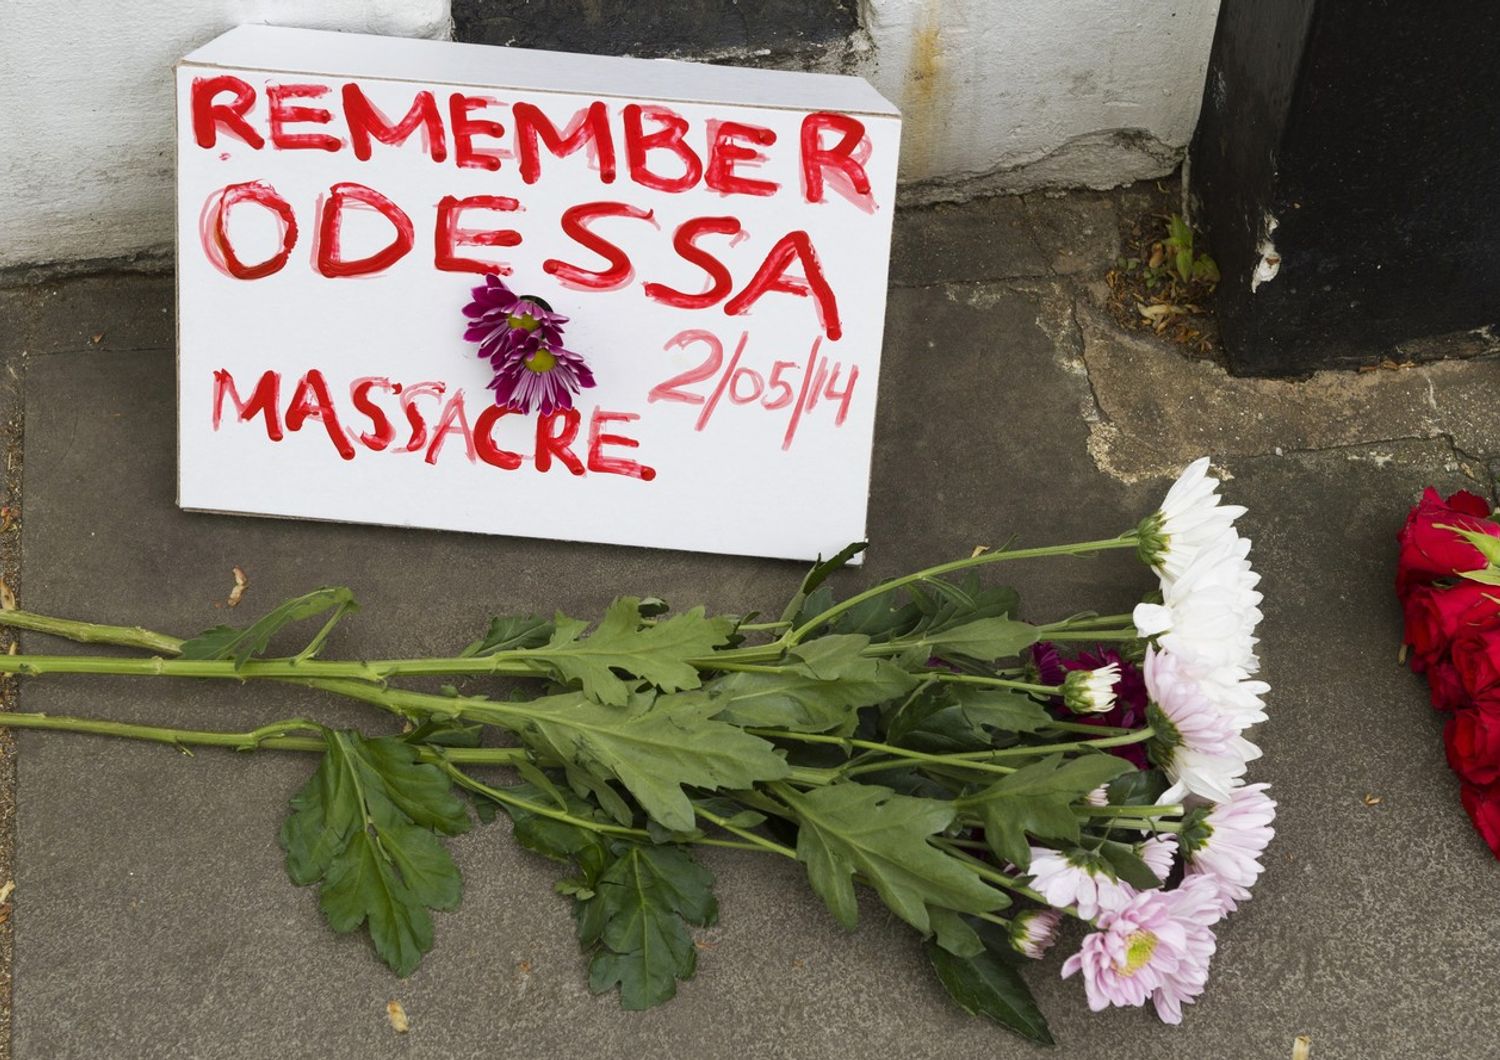 REMEMBER
ODESSA
2/05/14
MASSACRE